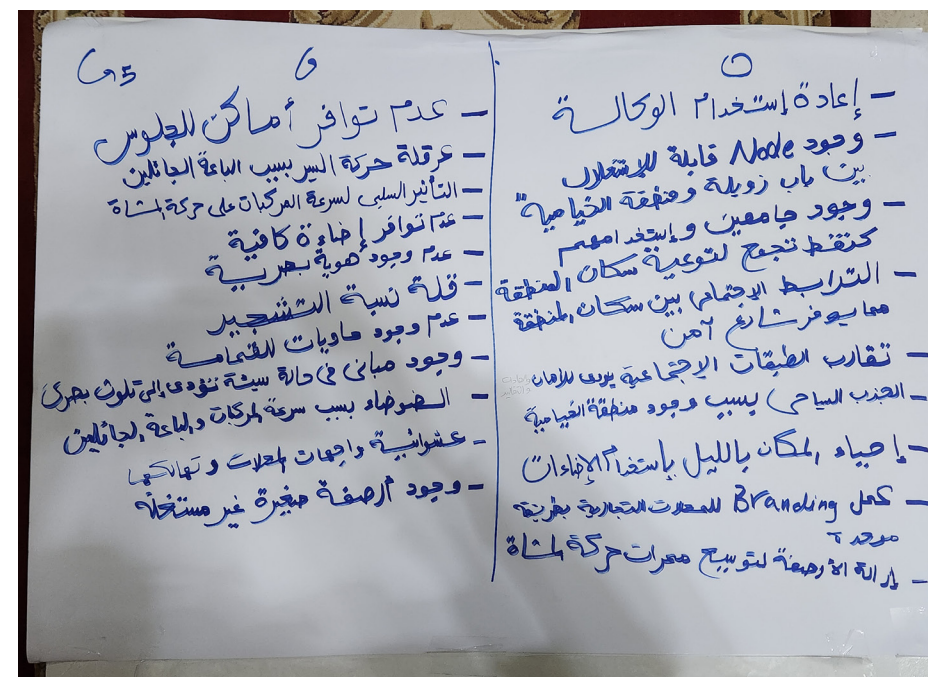 - إعادة إستخدام الوكالة
- وجود Node قابلة للإستغلال
بين باب زويلة ومنطقة الخيامية
- وجود جامعين وإستخدامهم
كنقط تجمع لتوعية سكان المنطقة
- الترابط الإجتماعى بين سكان المنطقة
مما يوفر شارع آمن
- تقارب الطبقات الإجتماعية يؤدى للأمان
- الجذب السياحى بسبب وجود منطقة الخيامية
- إحياء المكان بالليل بإستخدام الإضاءات
- عمل Branding للمحلات التجارية بطريقة
موحدة
- إزالة الأرصفة لتوسيع ممرات حركة المشاة
G5
- عدم توافر أماكن للجلوس
- عرقلة حركة السير بسبب الباعة الجائلين
- التأثير السلبى لسرعة المركبات على حركة المشاة
- عدم توافر إضاءة كافية
- عدم وجود هوية بصرية
- قلة نسبة التشجير
- عدم وجود حاويات للقمامة
- وجود مبانى فى حالة سيئة تؤدى إلى تلوث بصرى
- الضوضاء بسبب سرعة المركبات والباعة الجائلين
- عشوائية واجهات المحلات وتهالكها
- وجود أرصفة صغيرة غير مستغلة